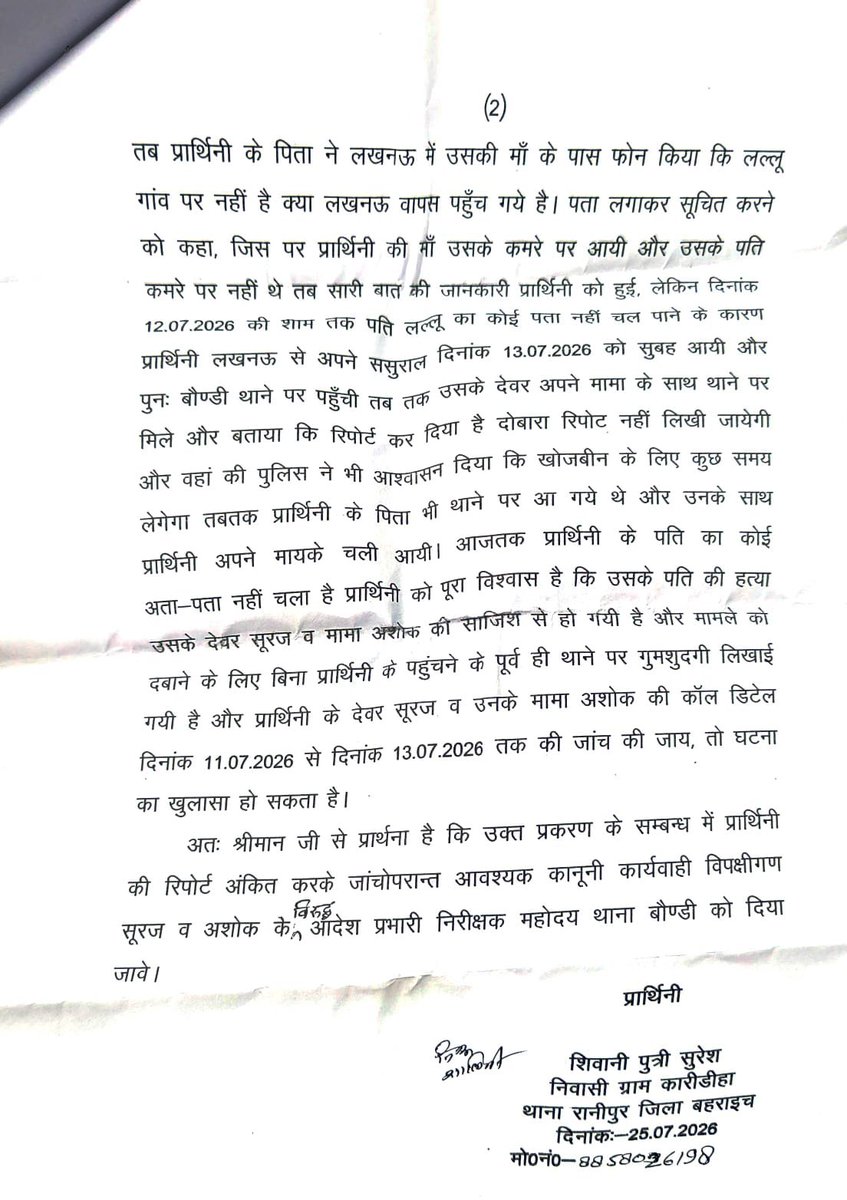 (2)
तब प्रार्थिनी के पिता ने लखनऊ में उसकी माँ के पास फोन किया कि लल्लू
गांव पर नहीं है क्या लखनऊ वापस पहुँच गये है। पता लगाकर सूचित करने
को कहा, जिस पर प्रार्थिनी की माँ उसके कमरे पर आयी और उसके पति
कमरे पर नहीं थे तब सारी बात की जानकारी प्रार्थिनी को हुई, लेकिन दिनांक
12.07.2026 की शाम तक पति लल्लू का कोई पता नहीं चल पाने के कारण
प्रार्थिनी लखनऊ से अपने ससुराल दिनांक 13.07.2026 को सुबह आयी और
पुनः बौण्डी थाने पर पहुँची तब तक उसके देवर अपने मामा के साथ थाने पर
मिले और बताया कि रिपोर्ट कर दिया है दोबारा रिपोट नहीं लिखी जायेगी
और वहां की पुलिस ने भी आश्वासन दिया कि खोजबीन के लिए कुछ समय
लेगेगा तबतक प्रार्थिनी के पिता भी थाने पर आ गये थे और उनके साथ
प्रार्थिनी अपने मायके चली आयी। आजतक प्रार्थिनी के पति का कोई
अता–पता नहीं चला है प्रार्थिनी को पूरा विश्वास है कि उसके पति की हत्या
उसके देवर सूरज व मामा अशोक की साजिश से हो गयी है और मामले को
दबाने के लिए बिना प्रार्थिनी के पहुंचने के पूर्व ही थाने पर गुमशुदगी लिखाई
गयी है और प्रार्थिनी के देवर सूरज व उनके मामा अशोक की कॉल डिटेल
दिनांक 11.07.2026 से दिनांक 13.07.2026 तक की जांच की जाय, तो घटना
का खुलासा हो सकता है।
अतः श्रीमान जी से प्रार्थना है कि उक्त प्रकरण के सम्बन्ध में प्रार्थिनी
की रिपोर्ट अंकित करके जांचोपरान्त आवश्यक कानूनी कार्यवाही विपक्षीगण
सूरज व अशोक के विरुद्ध आदेश प्रभारी निरीक्षक महोदय थाना बौण्डी को दिया
जावे।
प्रार्थिनी
शिवानी पुत्री सुरेश
निवासी ग्राम कारीडीहा
थाना रानीपुर जिला बहराइच
दिनांकः–25.07.2026
मो0नं0–8858026198